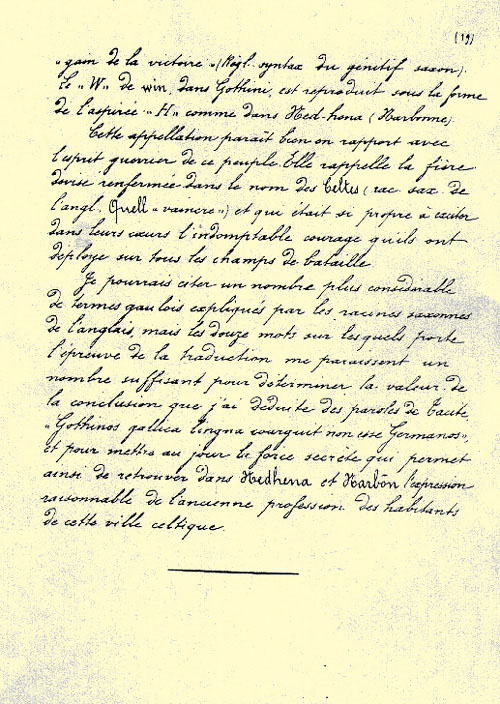 (19)
"gain de la victoire" (Règl. syntax du génitif saxon).
Le "W" de win, dans Gothini, est reproduit sous la forme
de l'aspirée "H" comme dans Hed-hena (Narbonne).
Cette appellation paraît bien en rapport avec
l'esprit guerrier de ce peuple. Elle rappelle la fière
devise renfermée dans le nom des Celtes (rac. sax. de
l'angl. Quell "vaincre") et qui était si propre à exciter
dans leurs cœurs l'indomptable courage qu'ils ont
déployé sur tous les champs de bataille.
Je pourrais citer un nombre plus considérable
de termes gaulois expliqués par les racines saxonnes
de l'anglais, mais les douze mots sur lesquels porte
l'épreuve de la traduction me paraissent un
nombre suffisant pour déterminer la valeur de
la conclusion que j'ai déduite des paroles de Tacite
"Gothinos gallica lingua coarguit non esse Germanos",
et pour mettre au jour la force secrète qui permet
ainsi de retrouver dans Hedhena et Narbôn l'expression
raisonnable de l'ancienne profession des habitants
de cette ville celtique.